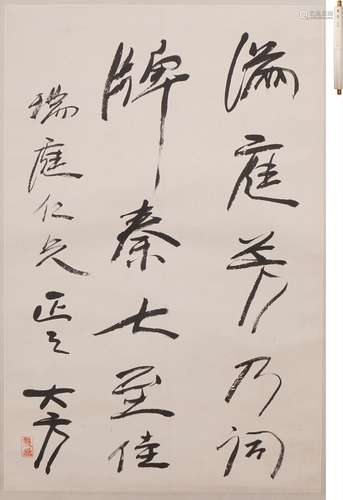 滿庭芳乃詞
牌秦七至佳
瑞庭仁兄正之大方